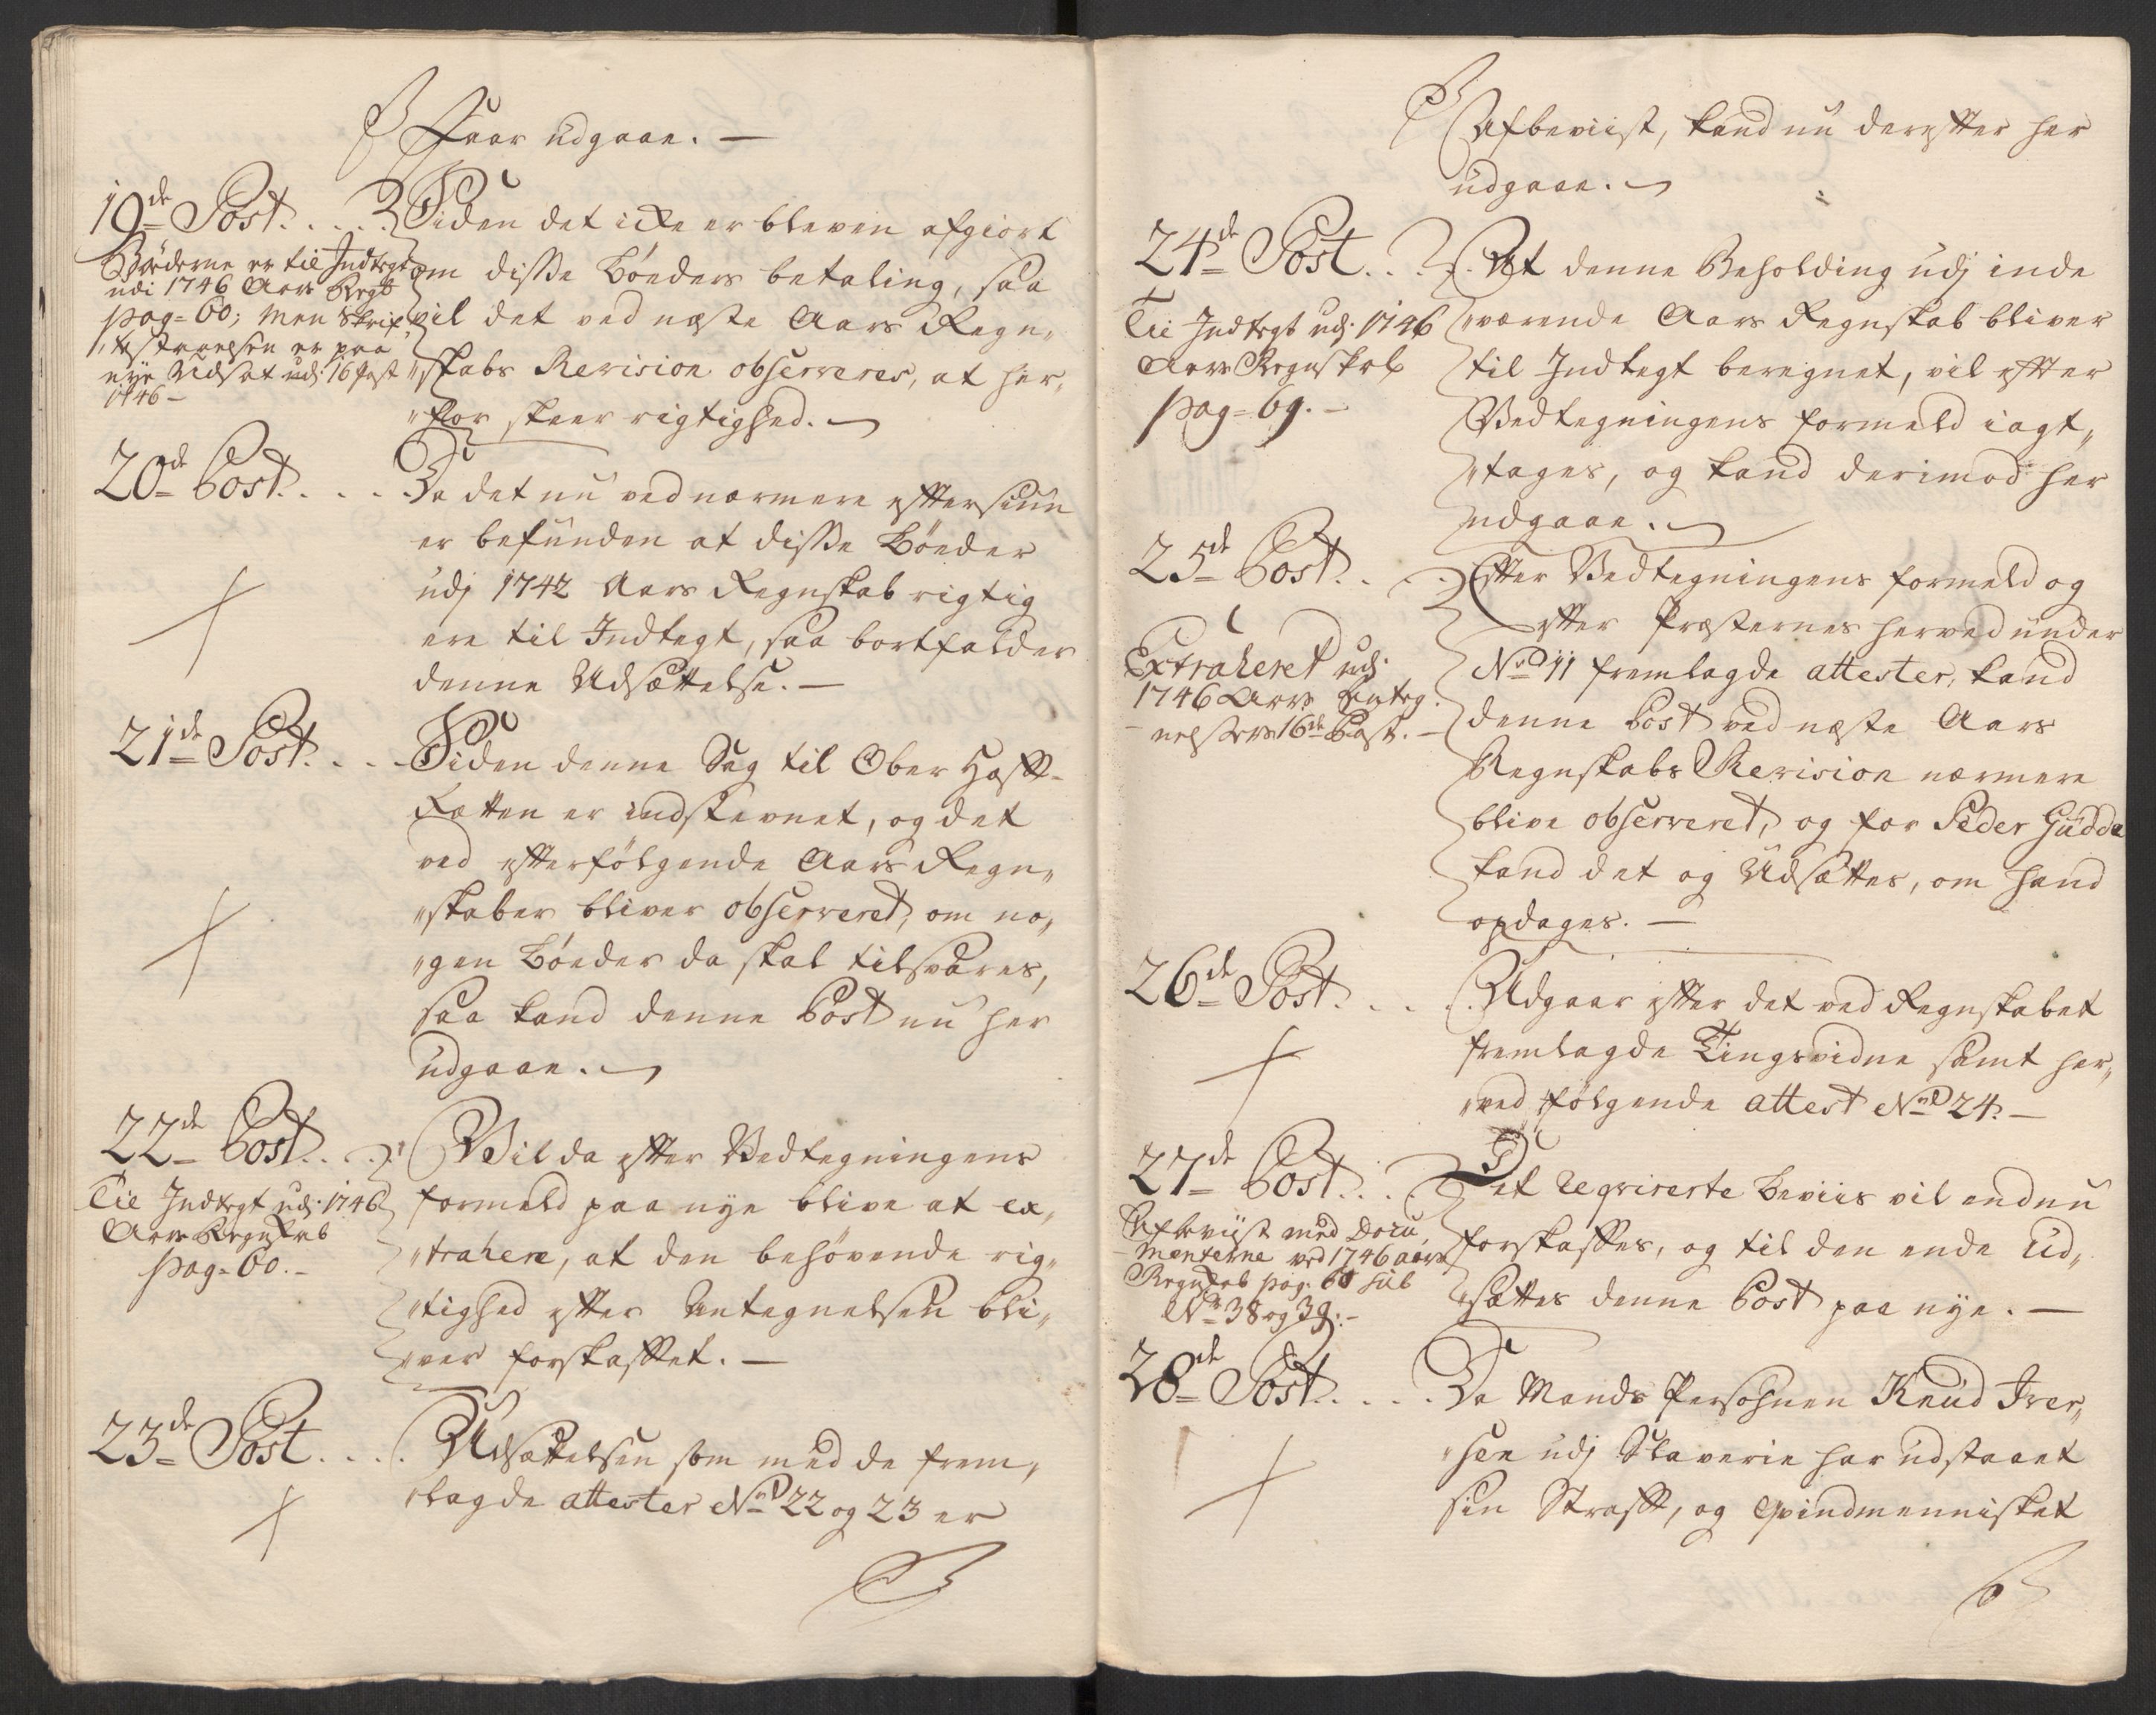 Faar udgaae. —
19de Post. . . . . Siden det icke er bleven afgiort
om disse Bøeders betaling, saa
vil det ved næste Aars Regn„
„skabs Revision observeres, at her„
„for skeer rigtighed. —
Bøderne er til Indtegt
udi 1746 Aars Regsb
pag= 60; Men Skrif„
nye Udsat udj 16 Post
1746 —
20de Post. . . . . Da det nu ved nærmere efftersiun
er befunden at disse Bøeder
udj 1742 Aars Regnskab rigtig
ere til Indtegt, saa bortfalder
denne Udsættelse. —
21de Post. . . Siden denne Sag til Ober Hoff-
Retten er indstevnet, og det
ved efterfølgende Aars Regn„
„skaber bliver observeret, om no„
„gen Bøeder da skal tilsvares,
saa kand denne Post nu her
udgaae. —
22de Post. . . . Vil da effter Vedtegningens
formeld paa nye blive at ex„
„trahere, at den behøvende rig„
„tighed effter Antegnelsen bli„
„ver forskaffet. —
Til Indtegt udj 1746
Aars Regnskab
pag= 60. —
23de Post. . . . Udsættelsen som med de frem„
„lagde attester No 22 og 23 er
Afbeviist, kand nu dereffter her
udgaae. —
24de Post. . . At denne Beholding udj inde
„værende Aars Regnskab bliver
til Indtegt beregnet, vil effter
Vedtegningens formeld iagt„
„tages, og kand derimod her
udgaae. —
Til Indtegt udj 1746
Aars Regnskab
pag= 69. —
25de Post. . . Effter Vedtegningens formeld og
effter Præsternes herved under
No 11 fremlagde attester, kand
denne Post ved næste Aars
Regnskabs Revision nærmere
blive observeret, og for Peder Gudde
kand det og Udsættes, om hand
opdages. —
Extraheret udj
1746 Aars Anteg„
nelsers 16de Post. —
26de Post. . . . Udgaar effter det ved Regnskabet
fremlagde Tingsvidne samt her„
„ved følgende attest No 24. —
27de Post. . . . Det reqvirerte Beviis vil endnu
forskaffes, og til den ende Ud„
„sættes denne Post paa nye. —
Afbeviist med Docu„
menterne ved 1746 aars
Regnskab pag. 60 sub
No 38 og 39. —
28de Post. . . . . Da Mands Persohnen Knud Iver„
„sen udj Slaverie har udstaaet
sin Straff, og Qvindmennisket